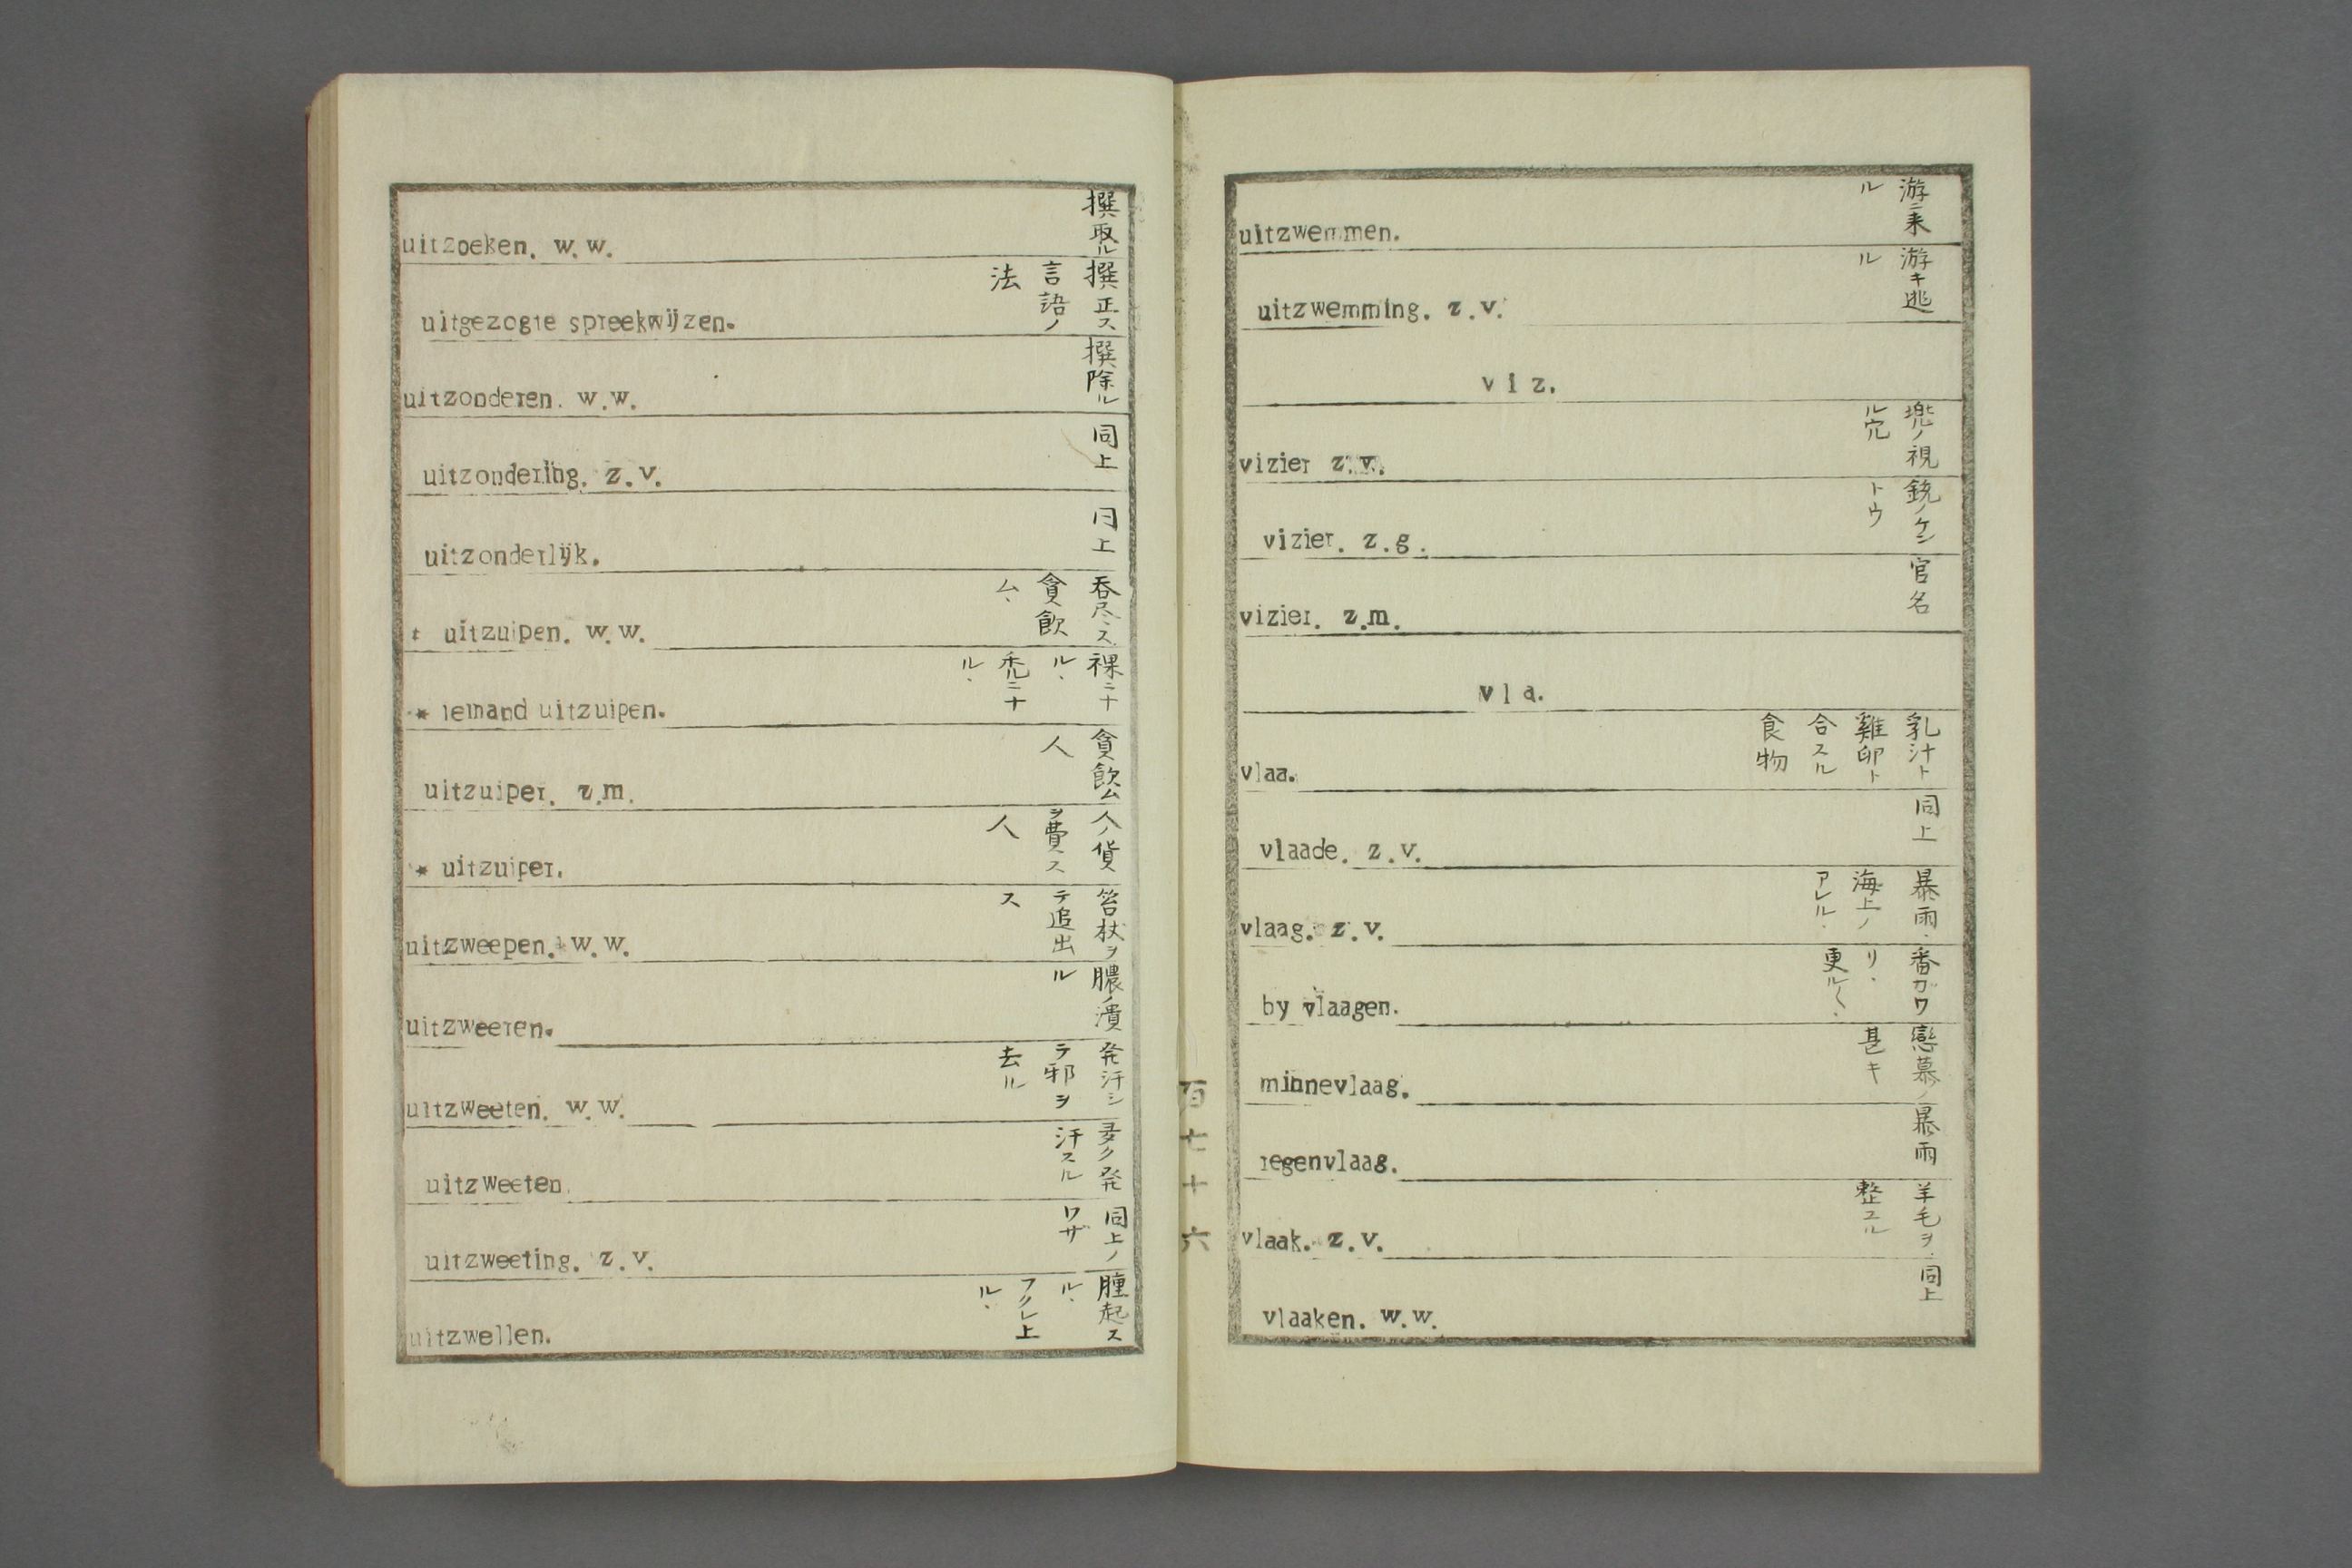 uitzoeken. w.w. 撰取ル
uitgezogte spreekwijzen. 撰正ス言語ノ法
uitzonderen. w.w. 撰除ル
uitzondering. z.v. 同上
uitzonderlijk. 同上
* uitzuipen. w.w. 呑尽ス、貪飲ム、
* iemand uitzuipen. 裸ニナル、禿ニナル、
uitzuiper. z.m. 貪飲ム人
* uitzuiper. 人ノ貨ヲ費ス人
uitzweepen. w.w. 笞杖ヲテ追出ス
uitzweeren. 膿ノ潰ル
uitzweeten. w.w. 発汗シテ邪ヲ去ル
uitzweeten. 多ク発汗スル
uitzweeting. z.v. 同上ノワザ
uitzwellen. 腫起スル、フクレ上ル、
百七十六
uitzwemmen. 游ニ来ル
uitzwemming. z.v. 游キ逃ル
viz.
vizier z.v. 兜ノ視ル穴
vizier. z.g. 銃ノケントウ
vizier. z.m. 官名
vla.
vlaa. 乳汁ト雞卵ト合スル食物
vlaade. z.v. 同上
vlaag. z.v. 暴雨、海上ノアレル、
by vlaagen. 番ガワリ、更ル〱、
minnevlaag. 戀慕ノ甚キ
regenvlaag. 暴雨
vlaak. z.v. 羊毛ヲ整ユル
vlaaken. w.w. 同上